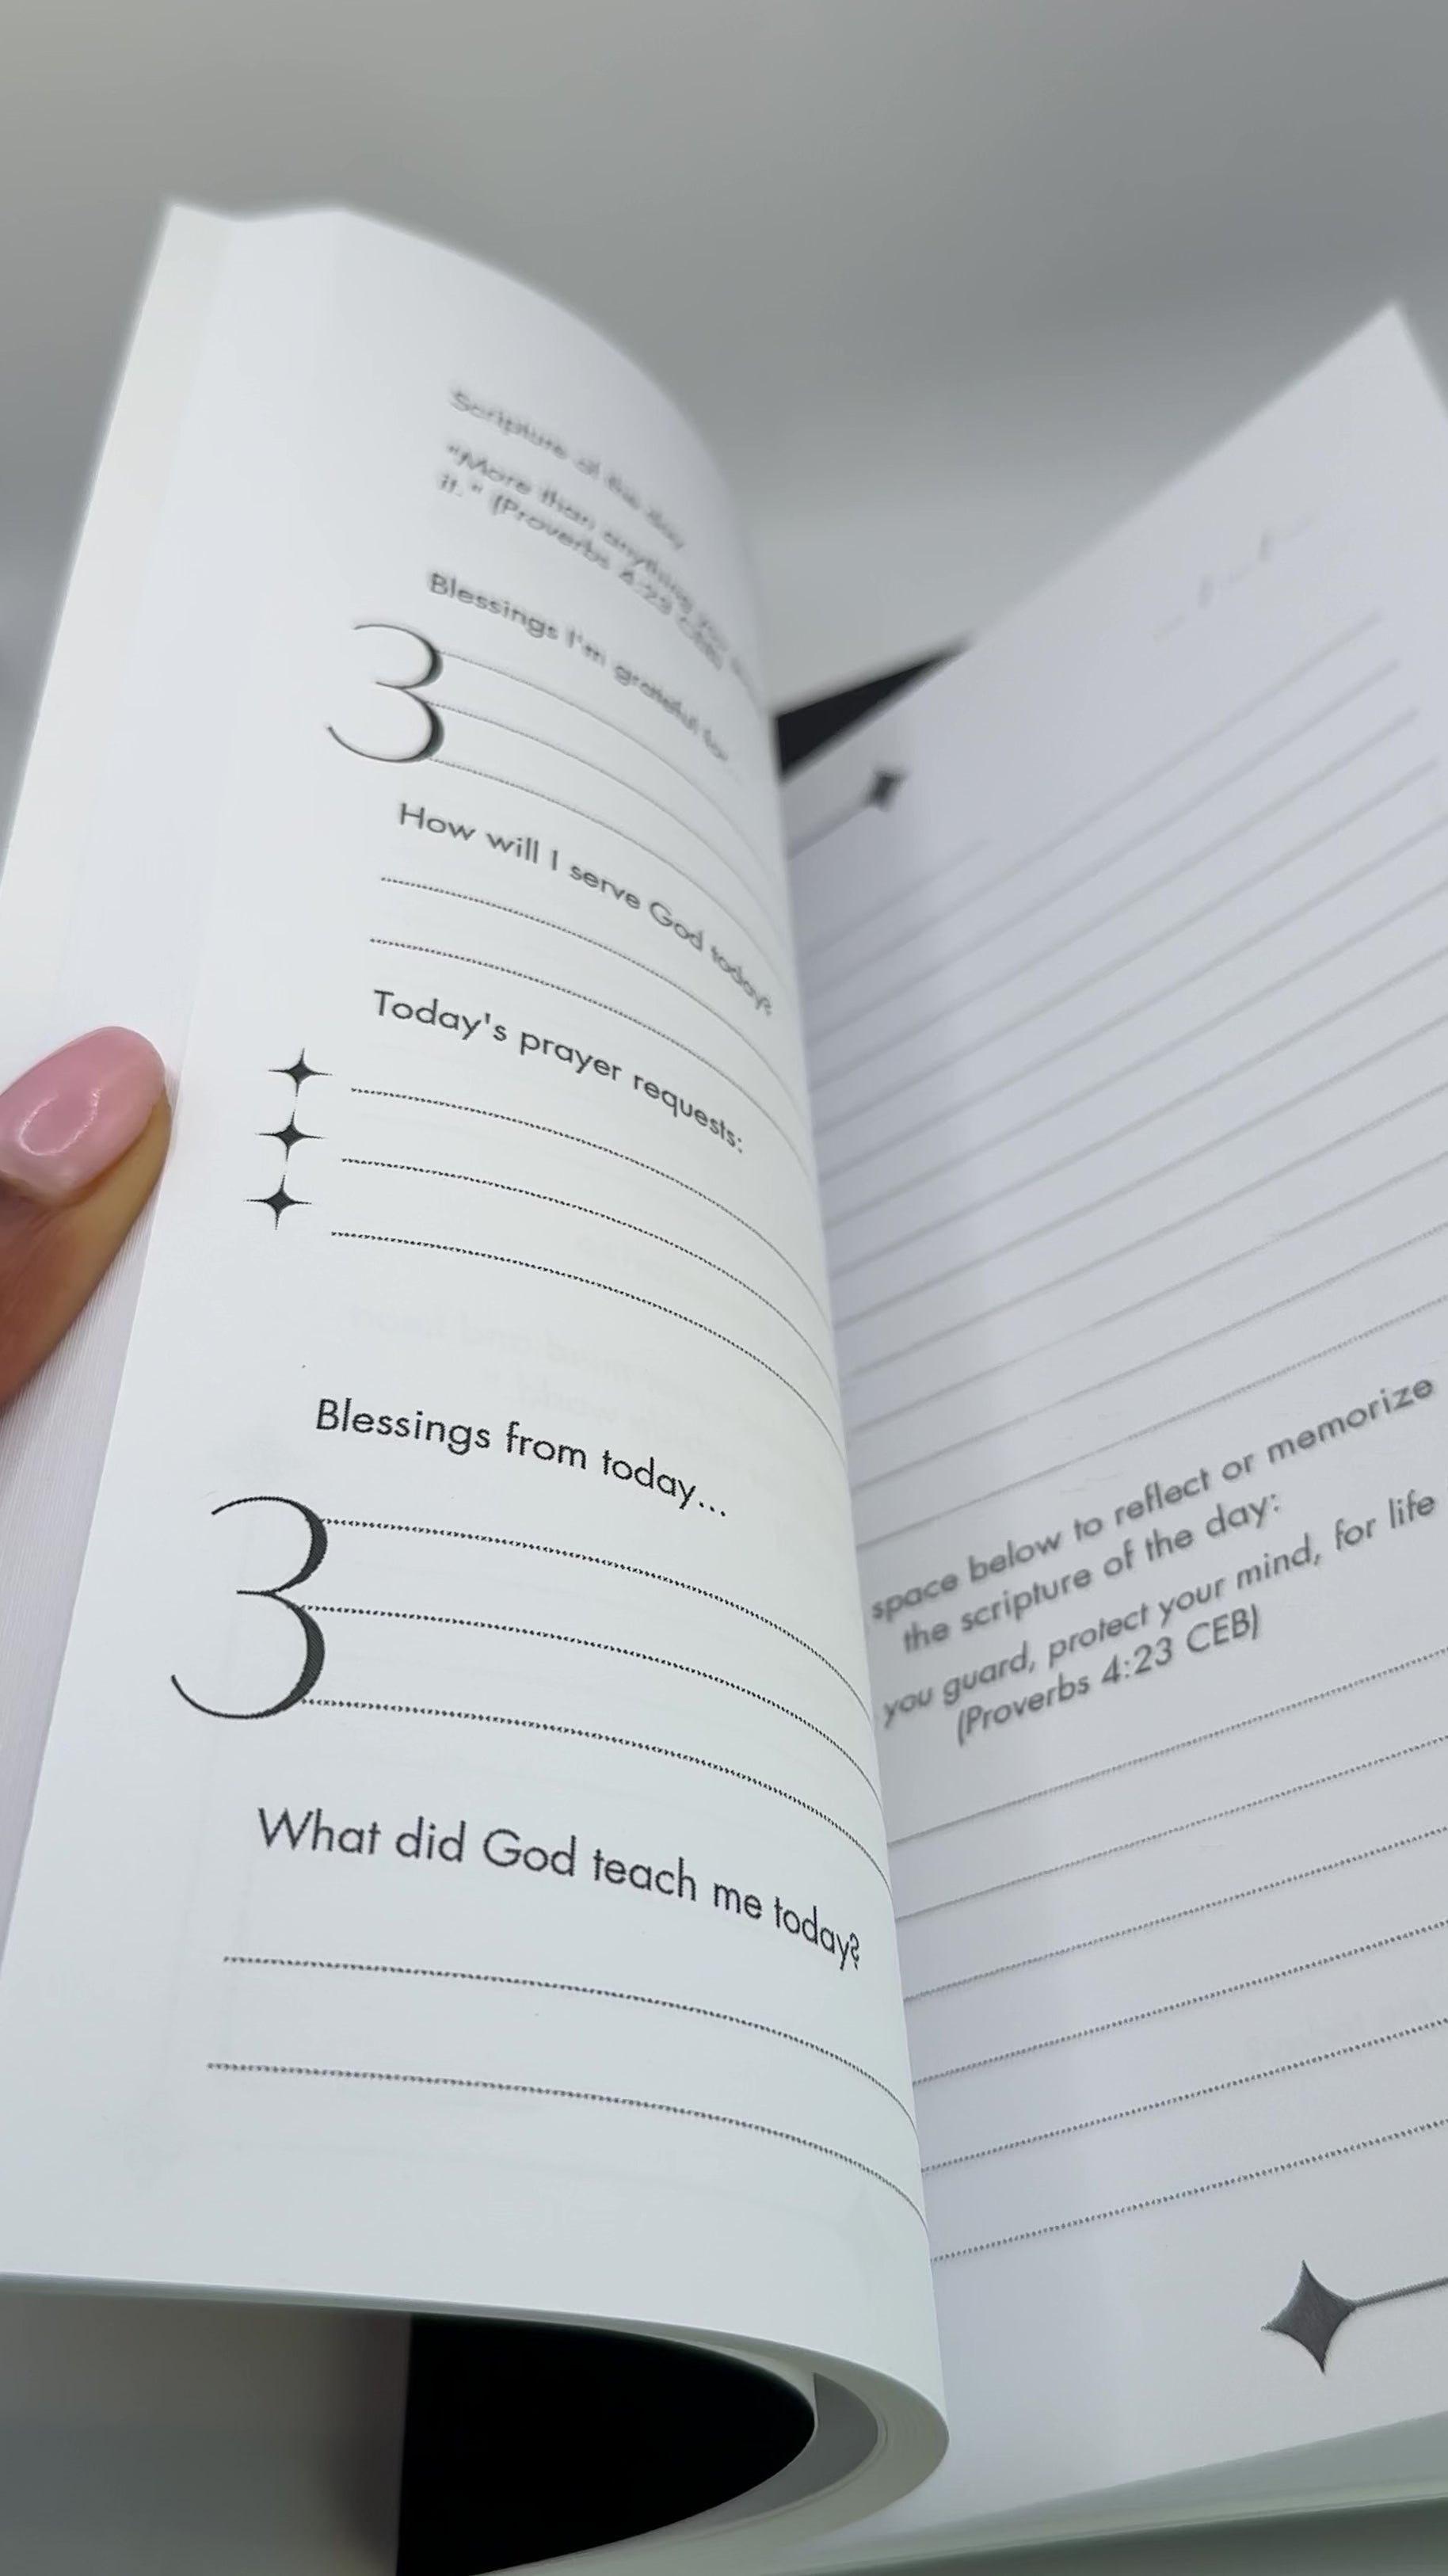 Scripture of the day
"More than anything you
it." (Proverbs 4:23 CEB)
Blessings I'm grateful for...
3
How will I serve God today?
Today's prayer requests:
Blessings from today...
3
What did God teach me today?
space below to reflect or memorize
the scripture of the day:
you guard, protect your mind, for life
(Proverbs 4:23 CEB)